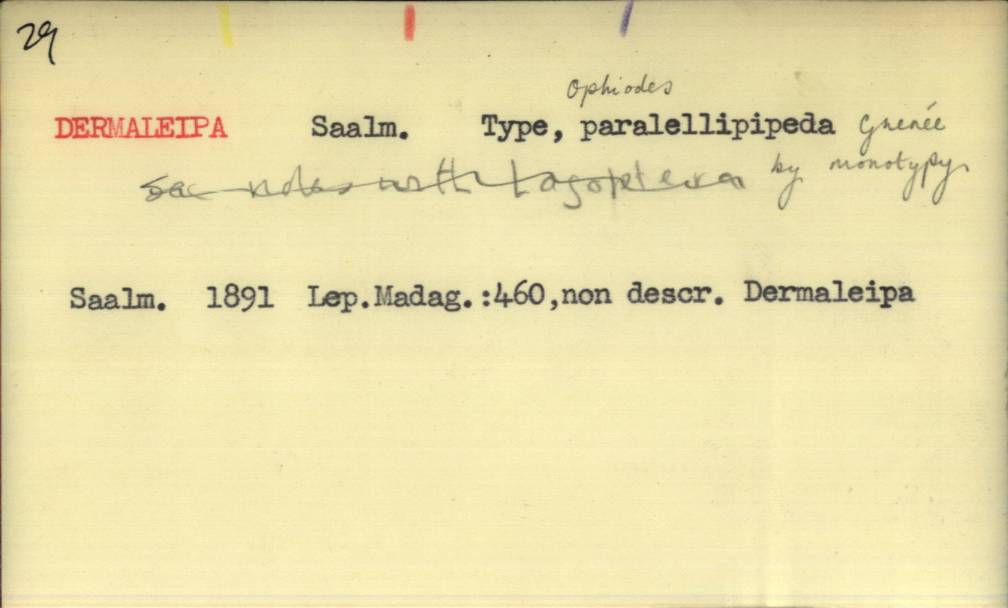 29
Ophiodes
DERMALEIPA Saalm. Type, paralellipipeda Guenée
see notes with Lagoptera by monotypy
Saalm. 1891 Lep.Madag.:460,non descr. Dermaleipa